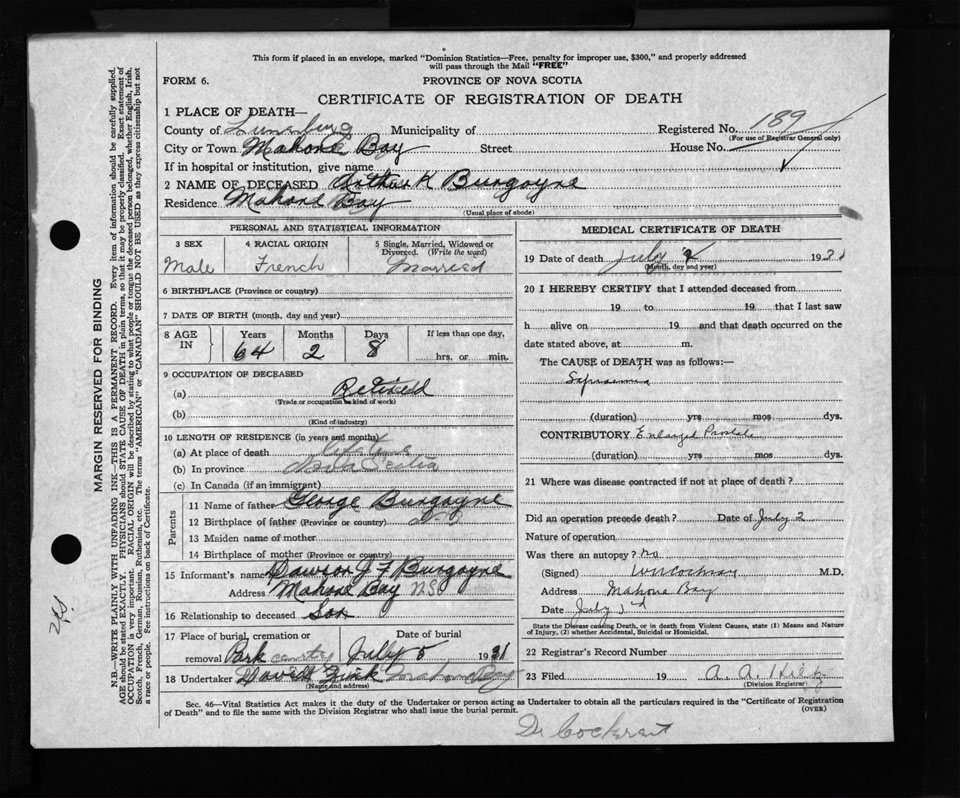 This form if placed in an envelope, marked "Dominion Statistics—Free, penalty for improper use, $300," and properly addressed
will pass through the Mail "FREE"
FORM 6.
PROVINCE OF NOVA SCOTIA
CERTIFICATE OF REGISTRATION OF DEATH
1 PLACE OF DEATH—
County of Lunenburg Municipality of Registered No. 189
(For use of Registrar General only)
City or Town Mahone Bay Street House No.
If in hospital or institution, give name
2 NAME OF DECEASED Arthur K Burgoyne
Residence Mahone Bay
(Usual place of abode)
PERSONAL AND STATISTICAL INFORMATION
3 SEX 4 RACIAL ORIGIN 5 Single, Married, Widowed or
Divorced. (Write the word)
Male French Married
6 BIRTHPLACE (Province or country)
7 DATE OF BIRTH (month, day and year)
8 AGE IN Years Months Days If less than one day,
64 2 8 hrs. or min.
9 OCCUPATION OF DECEASED
(a) Retired
(Trade or occupation or kind of work)
(b)
(Kind of industry)
10 LENGTH OF RESIDENCE (in years and months)
(a) At place of death
(b) In province Nova Scotia
(c) In Canada (if an immigrant)
Parents
11 Name of father George Burgoyne
12 Birthplace of father (Province or country)
13 Maiden name of mother
14 Birthplace of mother (Province or country)
15 Informant's name Dawson J F Burgoyne
Address Mahone Bay NS
16 Relationship to deceased Son
17 Place of burial, cremation or Date of burial
removal Park cemetry July 5 1931
18 Undertaker David Zink Mahone Bay
(Name and address)
MEDICAL CERTIFICATE OF DEATH
19 Date of death July 2 1931
(Month, day and year)
20 I HEREBY CERTIFY that I attended deceased from
19 to 19 that I last saw
h alive on 19 and that death occurred on the
date stated above, at m.
The CAUSE of DEATH was as follows:—
Sapraemia
(duration) yrs mos dys.
CONTRIBUTORY Enlarged Prostate
(duration) yrs. mos. dys.
21 Where was disease contracted if not at place of death?
Did an operation precede death? Date of July 2
Nature of operation
Was there an autopsy? no
(Signed) M.D.
Address Mahone Bay
Date July 3rd
State the Disease causing Death, or in death from Violent Causes, state (1) Means and Nature
of Injury, (2) whether Accidental, Suicidal or Homicidal.
22 Registrar's Record Number
23 Filed 19 A. A.
(Division Registrar)
Sec. 46—Vital Statistics Act makes it the duty of the Undertaker or person acting as Undertaker to obtain all the particulars required in the "Certificate of Registration
of Death" and to file the same with the Division Registrar who shall issue the burial permit.
(OVER)
MARGIN RESERVED FOR BINDING
N.B.—WRITE PLAINLY WITH UNFADING INK—THIS IS A PERMANENT RECORD. Every item of information should be carefully supplied.
AGE should be stated EXACTLY. PHYSICIANS should STATE CAUSE OF DEATH in plain terms, so that it may be properly classified. Exact statement of
OCCUPATION is very important. RACIAL ORIGIN will be described by stating to what people or tongue the deceased person belonged, whether English, Irish,
Scotch, French, German, Russian, Ruthenian, etc. The terms "AMERICAN" or "CANADIAN" SHOULD NOT BE USED as they express citizenship but not
a race or people. Fee instructions on back of Certificate.